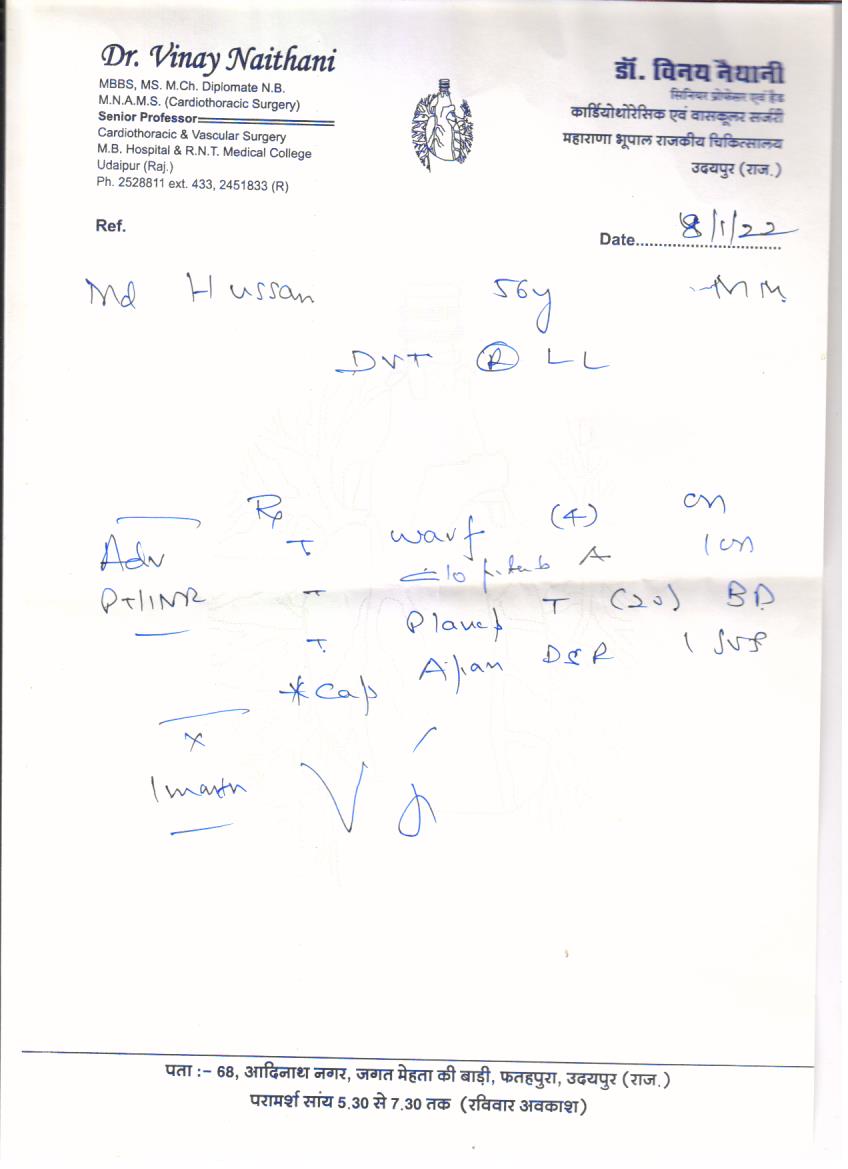 Dr. Vinay Naithani
MBBS, MS. M.Ch. Diplomate N.B.
M.N.A.M.S. (Cardiothoracic Surgery)
Senior Professor
Cardiothoracic & Vascular Surgery
M.B. Hospital & R.N.T. Medical College
Udaipur (Raj.)
Ph. 2528811 ext. 433, 2451833 (R)
डॉ. विनय नैथानी
सिनियर प्रोफेसर एवं हैड
कार्डियोथोरेसिक एवं वासकूलर सर्जरी
महाराणा भूपाल राजकीय चिकित्सालय
उदयपुर (राज.)
Ref.
Date 8/1/22
Md Hussan 56y
DVT (R) LL
Rx
T warf (4) on
Adv
T Clopitab A 1 on
PT/INR
T T (20) BD
* Cap DSR 1
x
1 month
पता :- 68, आदिनाथ नगर, जगत मेहता की बाड़ी, फतहपुरा, उदयपुर (राज.)
परामर्श सांय 5.30 से 7.30 तक (रविवार अवकाश)